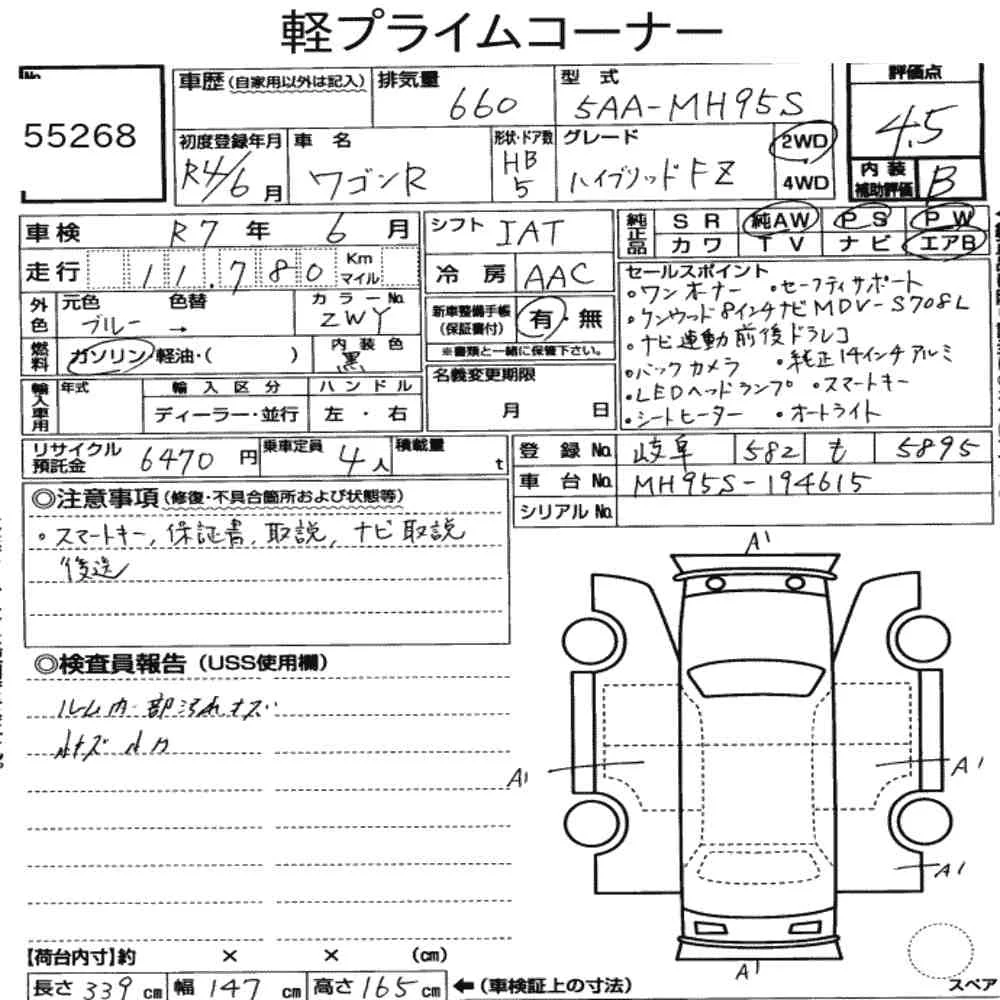 軽プライムコーナー
No.
55268
車歴(自家用以外は記入)
排気量 660
型 式 5AA-MH95S
評価点
4.5
初度登録年月 R4/6月
車 名 ワゴンR
形状・ドア数 HB 5
グレード ハイブリッドFZ
2WD
4WD
内 装
補助評価 B
車検 R7年 6月
シフト IAT
純正品 SR 純AW PS PW
カワ TV ナビ エアB
走行 11,780 Km マイル
冷 房 AAC
外色 元色 ブルー 色替 →
カラーNo. ZWY
新車整備手帳
(保証書付) 有・無
※書類と一緒に保管下さい。
燃料 ガソリン・軽油・( )
内装色 黒
名義変更期限
月 日
輸入車用 年式 輸入区分 ハンドル
ディーラー・並行 左・右
セールスポイント
・ワンオーナー ・セーフティサポート
・ケンウッド8インチナビMDV-S708L
・ナビ連動前後ドラレコ
・バックカメラ ・純正14インチアルミ
・LEDヘッドランプ ・スマートキー
・シートヒーター ・オートライト
リサイクル
預託金 6470円
乗車定員 4人
積載量 t
登 録 No. 岐阜 582 も 5895
車 台 No. MH95S-194615
シリアルNo.
◎注意事項(修復・不具合箇所および状態等)
・スマートキー,保証書,取説,ナビ取説
後送
◎検査員報告(USS使用欄)
ルーム内一部汚れキズ
小キズ 小凹
A1
A1
A1
A1
A1
【荷台内寸】約 × × (cm)
長さ 339 cm 幅 147 cm 高さ 165 cm ←(車検証上の寸法)
スペア